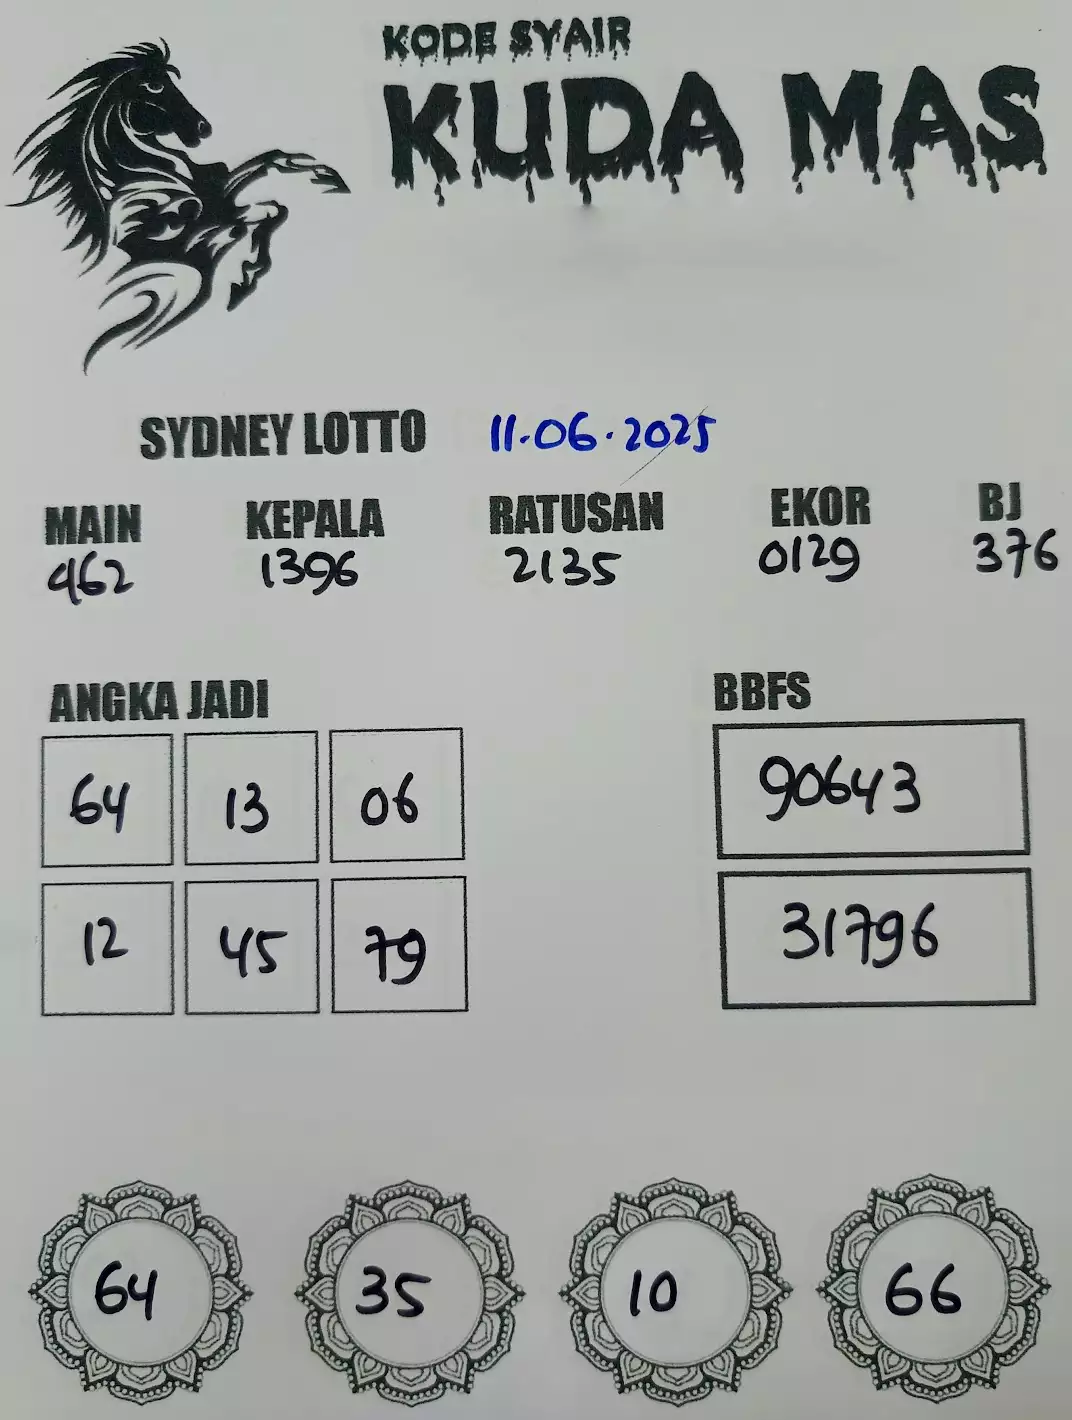 KODE SYAIR
KUDA MAS
SYDNEY LOTTO 11.06.2025
MAIN KEPALA RATUSAN EKOR BJ
462 1396 2135 0129 376
ANGKA JADI BBFS
64 13 06 90643
12 45 79 31796
64 35 10 66